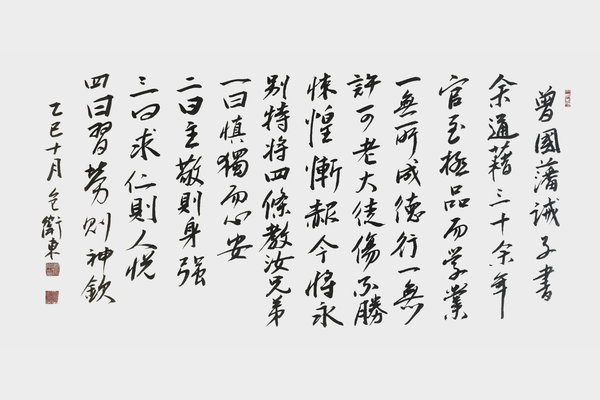 曾國藩誡子書
余通藉三十余年
官至極品而学業
一無所成德行一無
許可老大徒傷不勝
悚惶慚赧今將永
別特將四條教汝兄弟
一曰慎獨而心安
二曰主敬則身强
三曰求仁則人悦
四曰習勞則神欽
乙巳十月 衛東